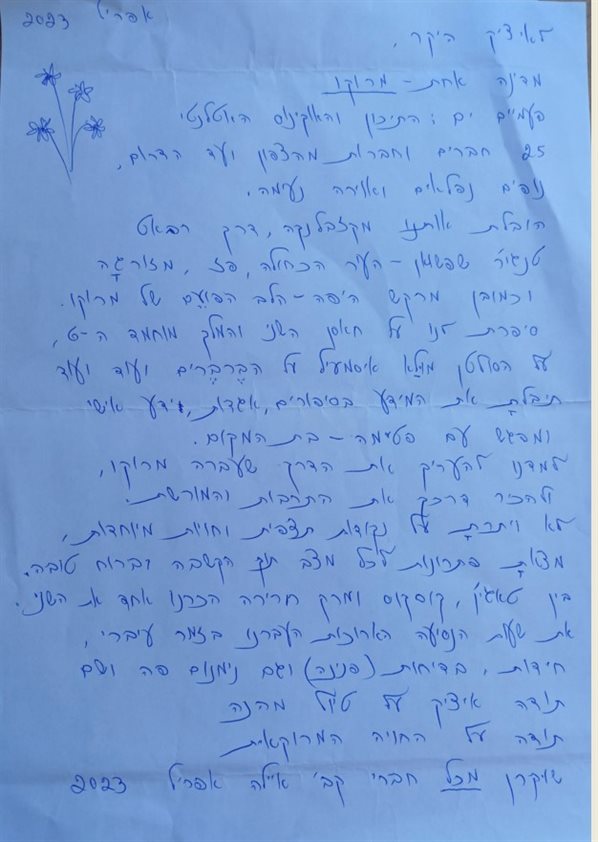 אפריל 2023
לאיציק היקר,
מדינה אחת - מרוקו
פעמיים ים: התיכון והאוקינוס האטלנטי
25 חברים וחברות מהצפון ועד הדרום,
נופים נפלאים ואוירה נעימה.
הובלת אותנו מקזבלנקה, דרך רבאט
טנג'יר שפשוואן - העיר הכחולה, פז, מזורגָה
וכמובן מרקש היפה - הלב הפועֵם של מרוקו.
סיפרת לנו על חאסן השני והמלך מוחמד ה-ט,
על הסולטן מוּלָא איסמעיל על הבֶּרבֶּרים ועוד ועוד
תיבלתָ את המידע בסיפורים, אגדות, ידע אישי
ומפגש עם פטימה - בת המקום.
למדנו להעריק את הדרך שעברה מרוקו,
ולהכיר דרכך את התרבות והמורשת.
לא ויתרתָ על נקודות תצפית וחויות מיוחדות,
מצאתָ פתרונות לכל מצב תוך הקשבה וברוח טובה.
בין טאג'ין, קוסקוס ומרק חרירה הכרנו אחד את השני.
את שעות הנסיעה הארוכות העברנו בזמר עיברי,
חידות, בדיחות (פנינה) וגם נימנום פה ושם
תודה איציק על טיול מהנה
תודה על החויה המרוקאית
שוקרן מכל חברי קב' איילה אפריל 2023